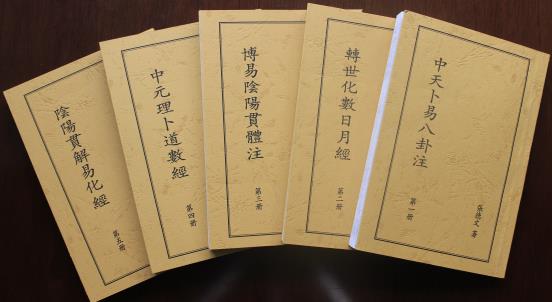 中天卜易八卦注
第一册
張德文 著
轉世化數日月經
第二册
博易陰陽貫體注
第三册
中元理卜道數經
第四册
陰陽貫解易化經
第五册